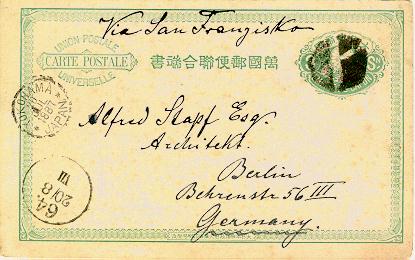 Via San Franzisko
UNION POSTALE
CARTE POSTALE
UNIVERSELLE
書端合聯便郵國萬
YOKOHAMA
JAPAN
Alfred Stapf Esq.
Architekt.
Berlin
Behrenstr 56 III
Germany.
64.
20/8
VII